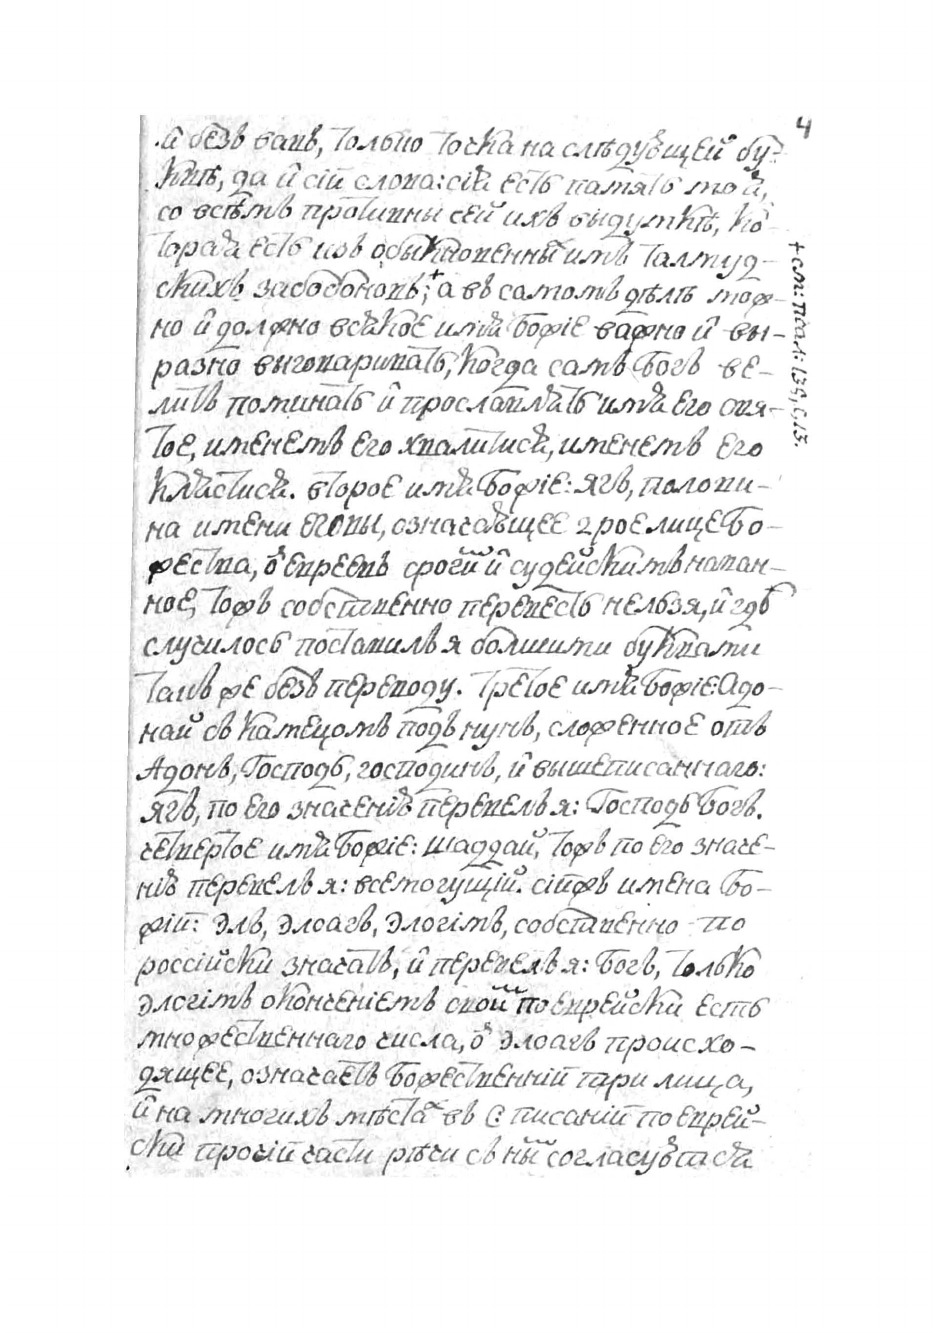 4
и безъ вавъ, только точка на слѣдующей бу-
квѣ, да и сїи слова: сїѧ есть память моѧ,
со всѣмъ противны сей ихъ выдумкѣ, ко-
тораѧ есть изъ обыкновеннымъ талмуд-
скихъ забобоновъ;+ а въ самомъ дѣлѣ мож-
но и должно всѧкое имѧ Божїе важно и вы-
разно выговаривать, когда самъ Богъ ве-
литъ поминать и прославлѧть имѧ Его свя-
тое, именемъ Его хвалитисѧ, именемъ Его
клѧстисѧ. второе имѧ Божїе: ягъ, полови-
на имени еговы, означающее 2рое лице Бо-
жества, ѿ евреевъ срогїй и судейскимъ назван-
ное, тожъ собственно перевесть нельзя, и гдѣ
случилось поставилъ я болшими буквами
такъ же безъ переводу. третое имѧ Божїе: Адо-
наи съ камецомъ подъ нунъ, сложенное отъ
Адонъ, Господь, господинъ, и вышеписаннаго:
ягъ, по его значенїю перевелъ я: Господь Богъ.
четвертое имѧ Божїе: шаддаи, тожъ по его значе-
нїю перевелъ я: всемогущїй. сїижъ имена Бо-
жїи: элъ, элоагъ, элогімъ, собственно по
россїйски значатъ, и перевелъ я: Богъ, только
элогімъ окончанїемъ своимъ по еврейски есть
множественнаго числа, ѿ элоагъ происхо-
дящее, означаетъ Божественнїи три лица,
и на многихъ мѣстахъ въ С писанїи по еврей-
ски прочїи части рѣчи съ нимъ согласуютсѧ
+ см: псал: 139, с, 13.